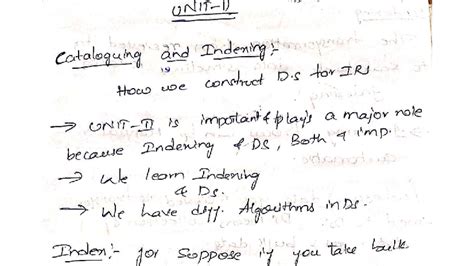 UNIT-II
Cataloguing and Indexing:-
How we construct D.S for IRS
→ UNIT-II is important & plays a major role
because Indexing & DS, Both & imp.
→ We learn Indexing
& DS.
→ We have diff. Algorithms in DS.
Index:- for suppose if you take bulk